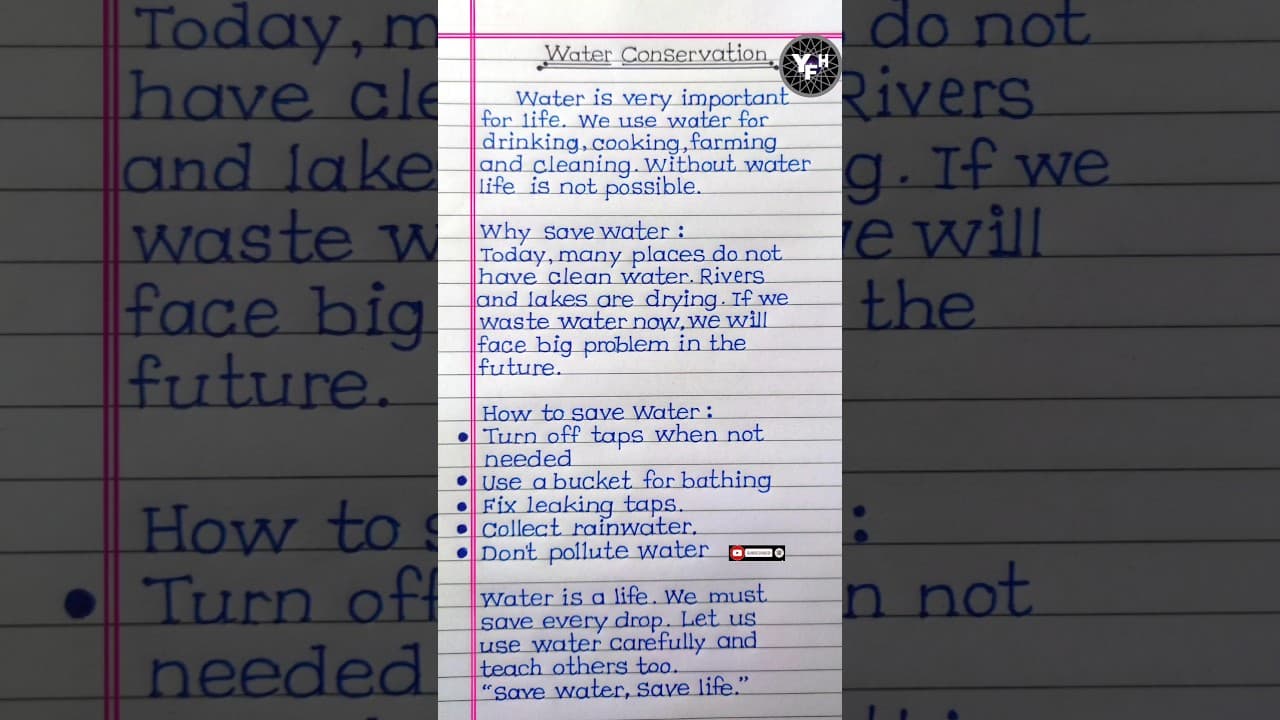 Water Conservation
YFH
Water is very important
for life. We use water for
drinking, cooking, farming
and cleaning. Without water
life is not possible.
Why save water :
Today, many places do not
have clean water. Rivers
and lakes are drying. If we
waste water now, we will
face big problem in the
future.
How to save Water :
• Turn off taps when not
needed
• Use a bucket for bathing
• Fix leaking taps.
• Collect rainwater.
• Don't pollute water
SUBSCRIBED
Water is a life. We must
save every drop. Let us
use water carefully and
teach others too.
“Save water, Save life.”
Today, m
have cle
and lake
waste w
face big
future.
How to s
• Turn off
needed
do not
Rivers
g. If we
e will
the
:
n not